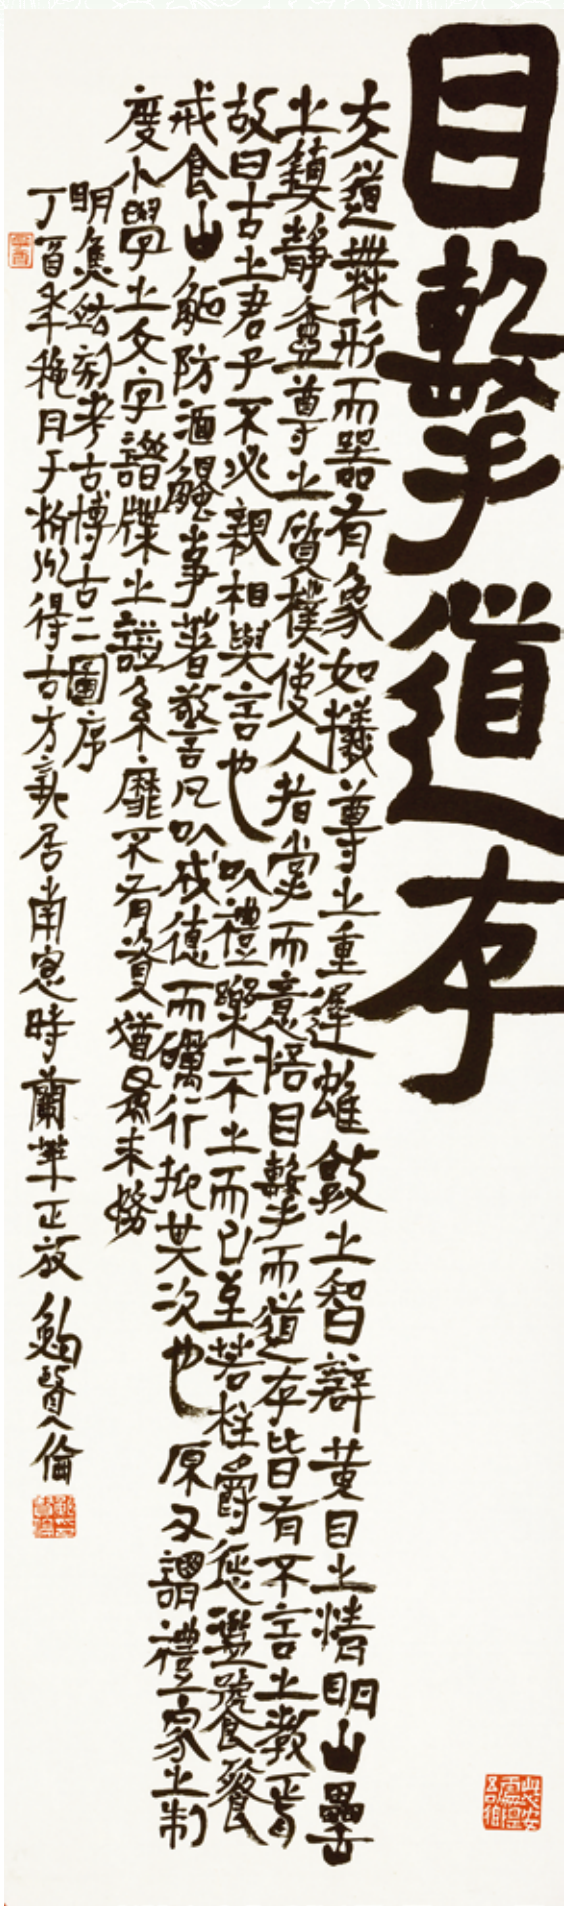 目擊道存
大道無形而器有象如犧尊之重遲雖敦之智辯黃目之情明山罍
之鎮靜壺尊之質樸使人指掌而意悟目擊而道存皆有不言之教焉
故曰古之君子不必親相與言也以禮樂示之而已至若柱爵懲
戒食山 防酒 事著敬言凡以成德而礪行抑其次也原又謂禮家之制
度小學之文字譜牒之證系靡不有資 最末務
明焦竑刻考古博古二圖序
丁酉年穐月于 得古方 居南窗時蘭華正放 鮑賢倫